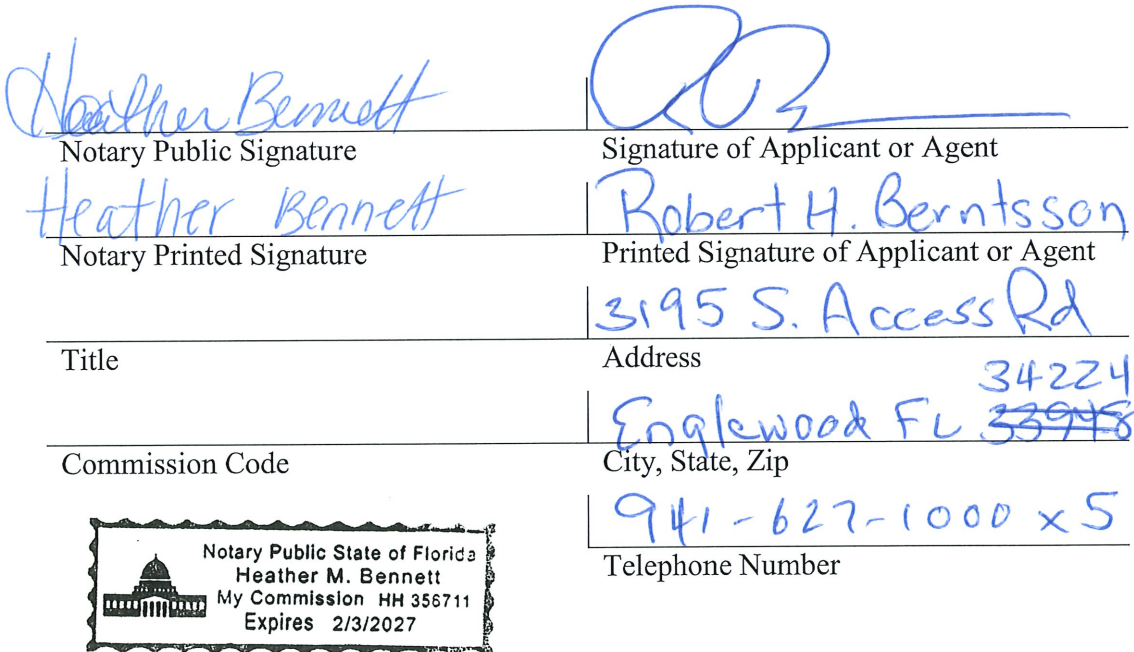 Heather Bennett
Notary Public Signature
Heather Bennett
Notary Printed Signature
Title
Commission Code
Notary Public State of Florida
Heather M. Bennett
My Commission HH 356711
Expires 2/3/2027
Signature of Applicant or Agent
Robert H. Berntsson
Printed Signature of Applicant or Agent
3195 S. Access Rd
Address
34224
Englewood FL 33948
City, State, Zip
941-627-1000 x 5
Telephone Number